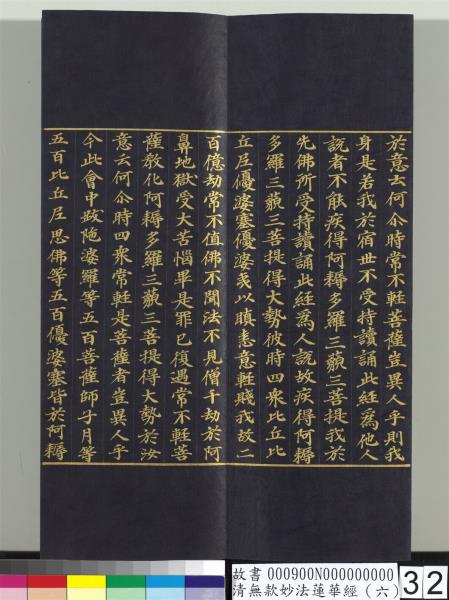 於意云何尒時常不輕菩薩豈異人乎則我
身是若我於宿世不受持讀誦此經為他人
說者不能疾得阿耨多羅三藐三菩提我於
先佛所受持讀誦此經為人說故疾得阿耨
多羅三藐三菩提得大勢彼時四衆比丘比
丘尼優婆塞優婆夷以瞋恚意輕賤我故二
百億劫常不值佛不聞法不見僧千劫於阿
鼻地獄受大苦惱畢是罪已復遇常不輕菩
薩教化阿耨多羅三藐三菩提得大勢於汝
意云何尒時四衆常輕是菩薩者豈異人乎
今此會中跋陁婆羅等五百菩薩師子月等
五百比丘尼思佛等五百優婆塞皆於阿耨
故書 000900N000000000
清無款妙法蓮華經（六）
32